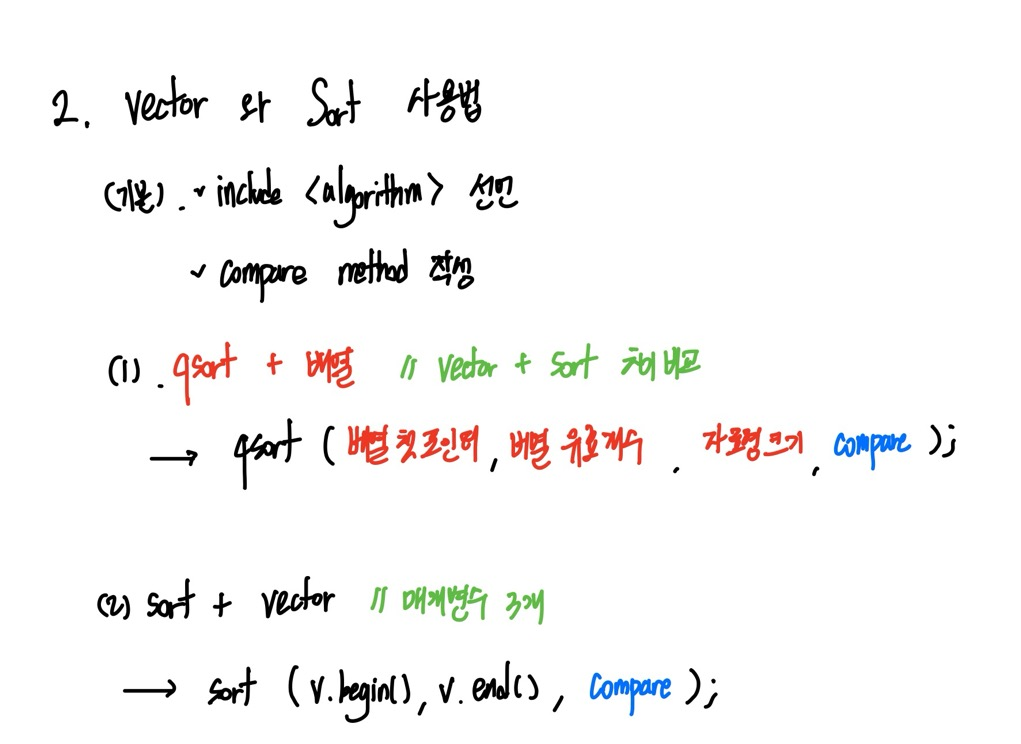 2. vector 와 Sort 사용법
(기본). ✓ include <algorithm> 선언
✓ compare method 작성
(1). qsort + 배열 // vector + sort 차이 비교
→ qsort ( 배열 첫 포인터, 배열 유효개수, 자료형 크기, compare );
(2) sort + vector // 매개변수 3개
→ sort (v.begin(), v.end(), compare );